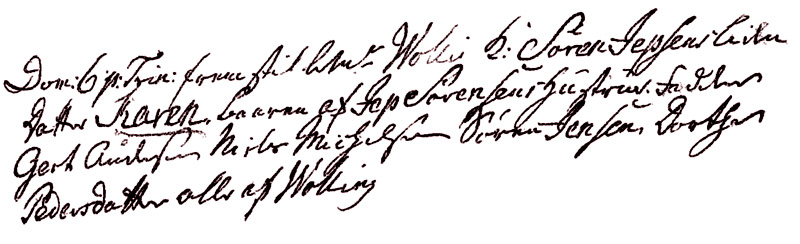 Dom: 6 p: Trin: fremstillet udi Wolling K: Sören Jepsens liden
Datter Karen, baaren af Jep Sörensens Hustrue. Faddere
Gert Andersen Niels Michelsen Sören Jensen, Dorthe
Pedersdatter alle af Wolling